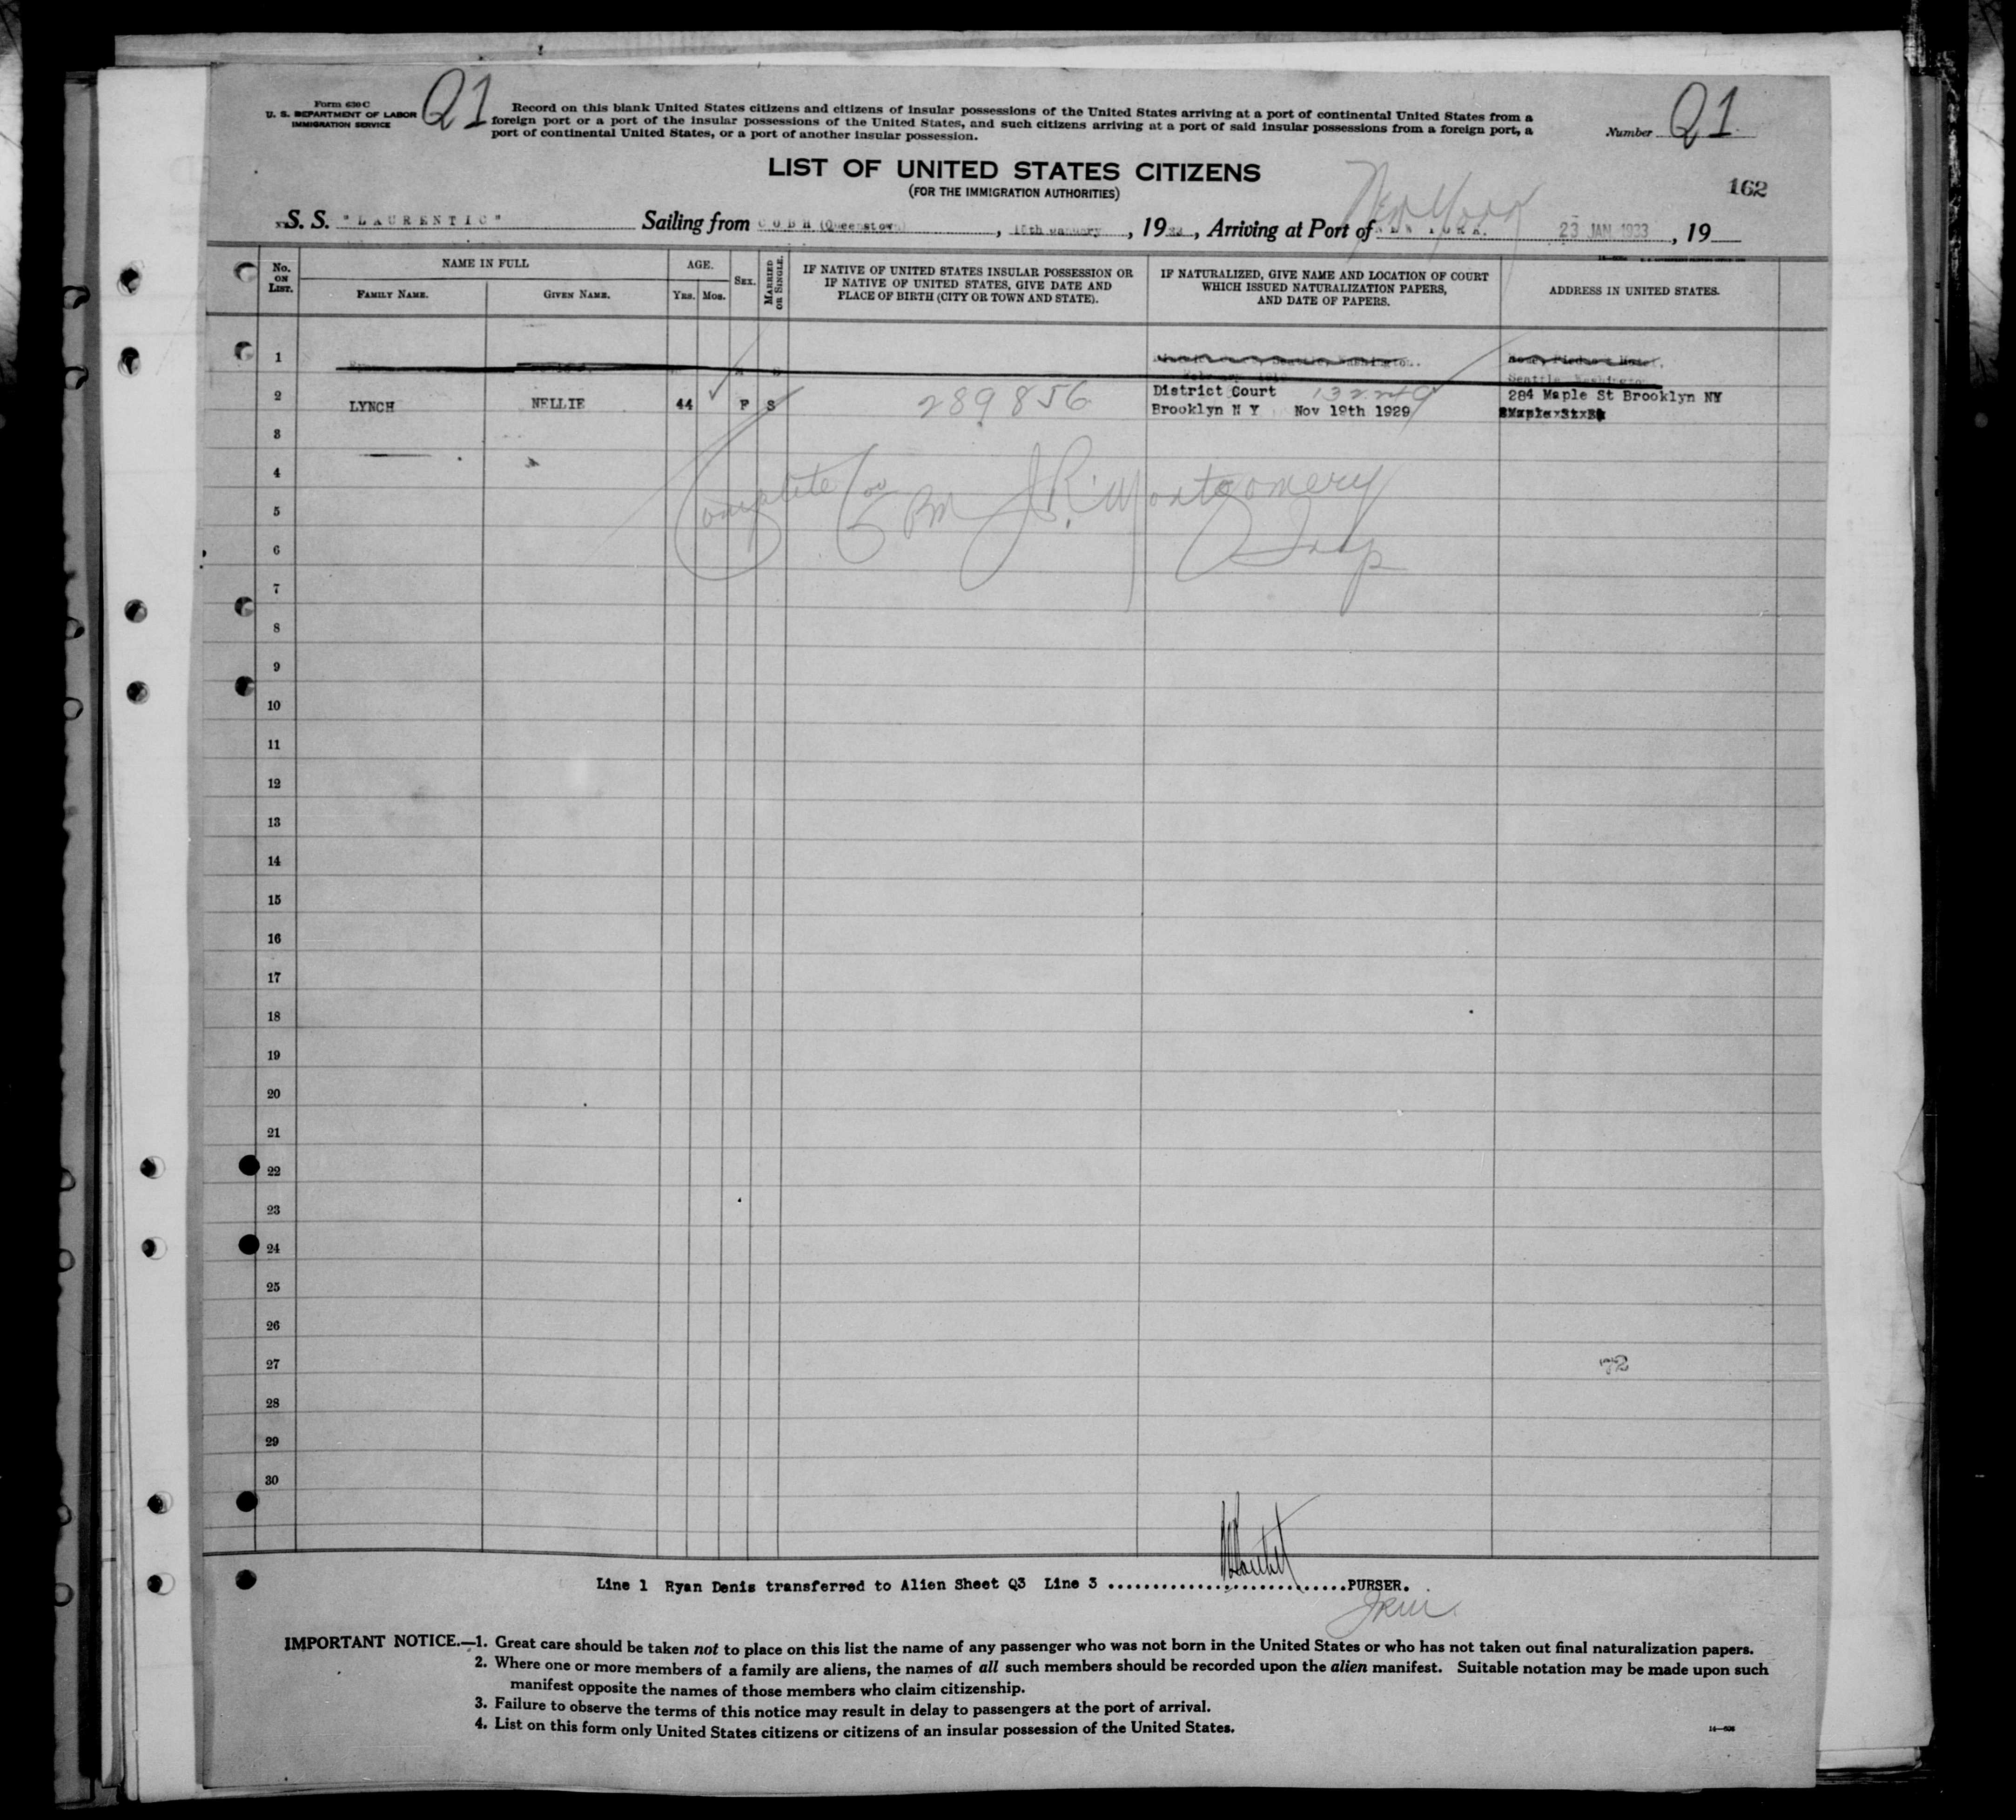 Form 630 C
U. S. DEPARTMENT OF LABOR
IMMIGRATION SERVICE
Q1
Record on this blank United States citizens and citizens of insular possessions of the United States arriving at a port of continental United States from a
foreign port or a port of the insular possessions of the United States, and such citizens arriving at a port of said insular possessions from a foreign port, a
port of continental United States, or a port of another insular possession.
Number Q1
LIST OF UNITED STATES CITIZENS
(FOR THE IMMIGRATION AUTHORITIES)
162
New York
S. S. "LAURENTIC" Sailing from COBH (Queenstown), 15th January, 19 , Arriving at Port of NEW YORK. 23 JAN 1933, 19
No. ON LIST.
NAME IN FULL
FAMILY NAME.
GIVEN NAME.
AGE.
YRS.
MOS.
SEX.
MARRIED OR SINGLE.
IF NATIVE OF UNITED STATES INSULAR POSSESSION OR
IF NATIVE OF UNITED STATES, GIVE DATE AND
PLACE OF BIRTH (CITY OR TOWN AND STATE).
IF NATURALIZED, GIVE NAME AND LOCATION OF COURT
WHICH ISSUED NATURALIZATION PAPERS,
AND DATE OF PAPERS.
ADDRESS IN UNITED STATES.
1 Seattle, Washington.
Seattle Washington
2 LYNCH NELLIE 44 F S 289856 District Court 132249 284 Maple St Brooklyn NY
Brooklyn N Y Nov 19th 1929
3
4
Complete PM J R Montgomery
5
6
Insp
7
8
9
10
11
12
13
14
15
16
17
18
19
20
21
22
23
24
25
26
27
72
28
29
30
Line 1 Ryan Denis transferred to Alien Sheet Q3 Line 3 ..............................PURSER.
JRM
IMPORTANT NOTICE.—1. Great care should be taken not to place on this list the name of any passenger who was not born in the United States or who has not taken out final naturalization papers.
2. Where one or more members of a family are aliens, the names of all such members should be recorded upon the alien manifest. Suitable notation may be made upon such
manifest opposite the names of those members who claim citizenship.
3. Failure to observe the terms of this notice may result in delay to passengers at the port of arrival.
4. List on this form only United States citizens or citizens of an insular possession of the United States.